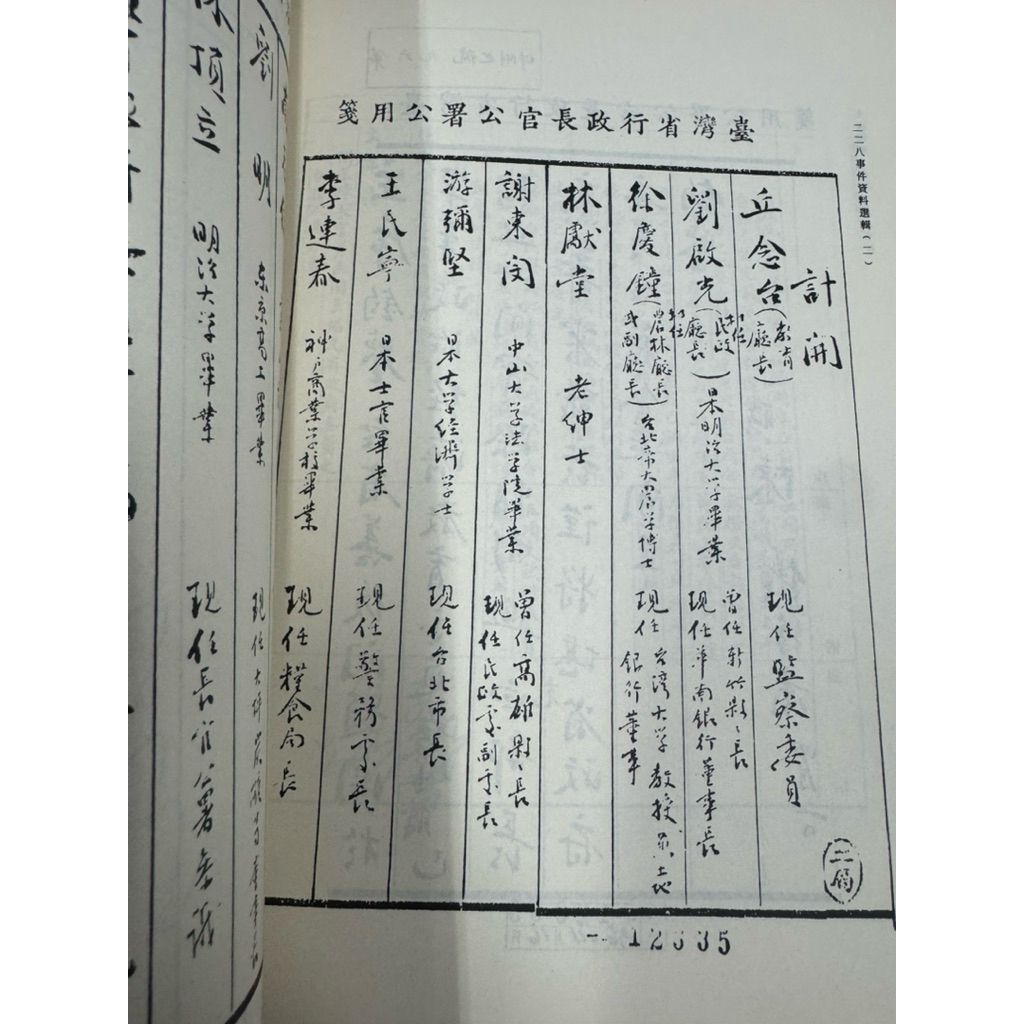 二二八事件資料選輯(二)
臺灣省行政長官公署公用箋
計開
丘念台(教育廳長) 現任監察委員
劉啟光(民政廳長) 日本明治大学畢業 曾任新竹縣縣長 現任華南銀行董事長
徐慶鐘(農林廳長或副廳長) 台北帝大農学博士 現任台湾大学教授 土地銀行董事
林獻堂 老紳士
謝東閔 中山大学法学院畢業 曾任高雄縣縣長 現任民政處副處長
游彌堅 日本大学经濟学士 現任台北市長
王民寧 日本士官畢業 現任警務處長
李連春 神户商業学校畢業 現任糧食局長
劉明 东京高工畢業 現任
頂立 明治大学畢業 現任長官公署参議
12335